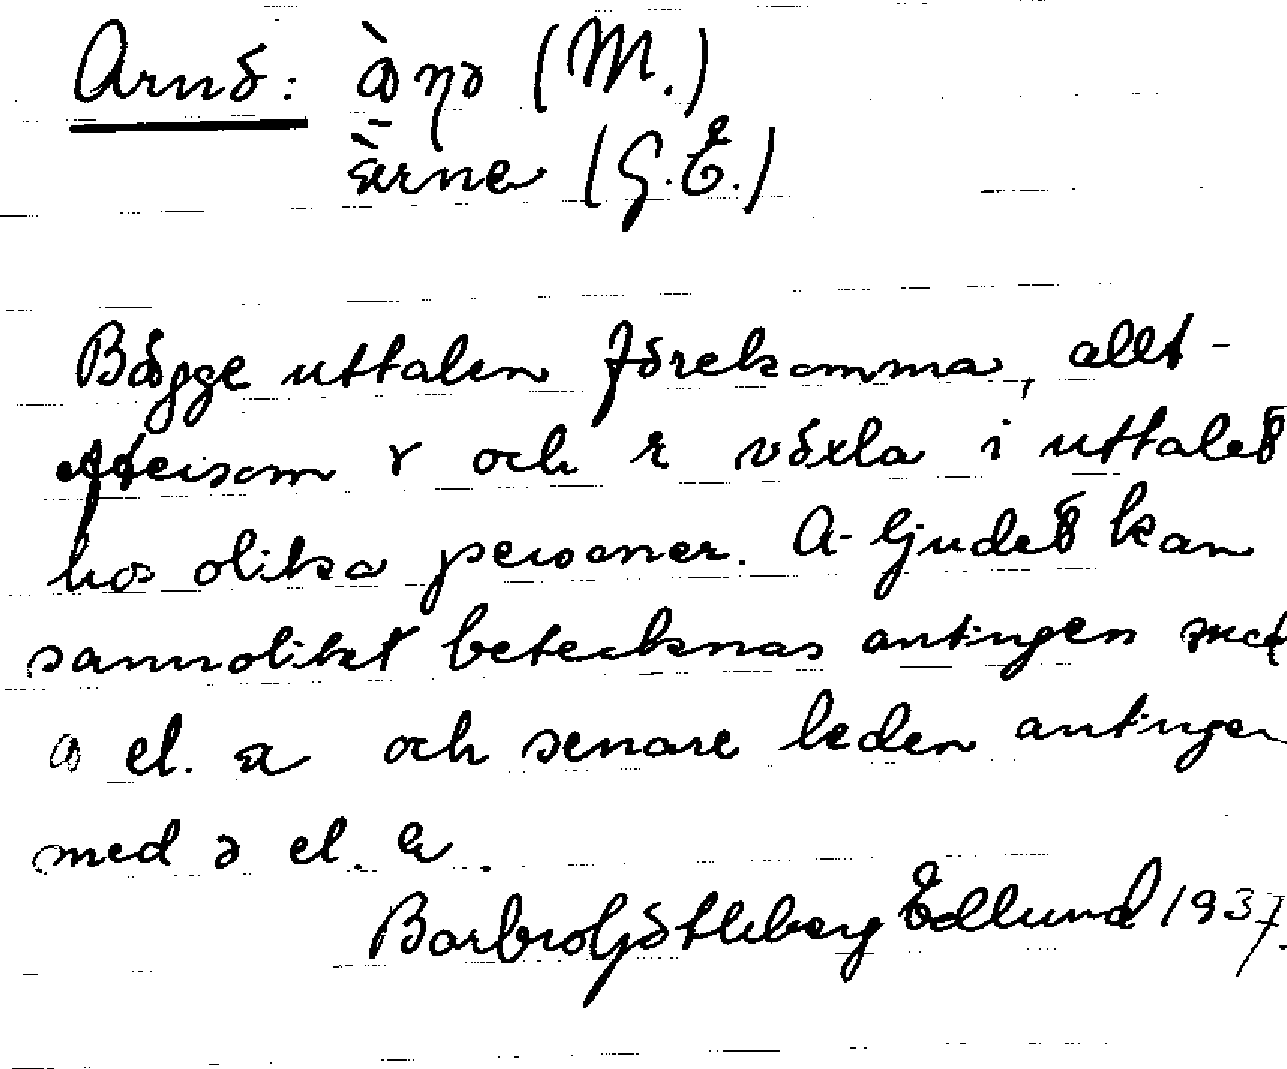 Arnö: àṇə (M.)
àrne (G.E.)
Bägge uttalen förekomma, allt-
eftersom r och ɽ växla i uttalet
hos olika personer. A-ljudet kan
sannolikt betecknas antingen med
a el. a och senare leden antingen
med ə el. e.
Barbro Götleberg Edlund 1937.